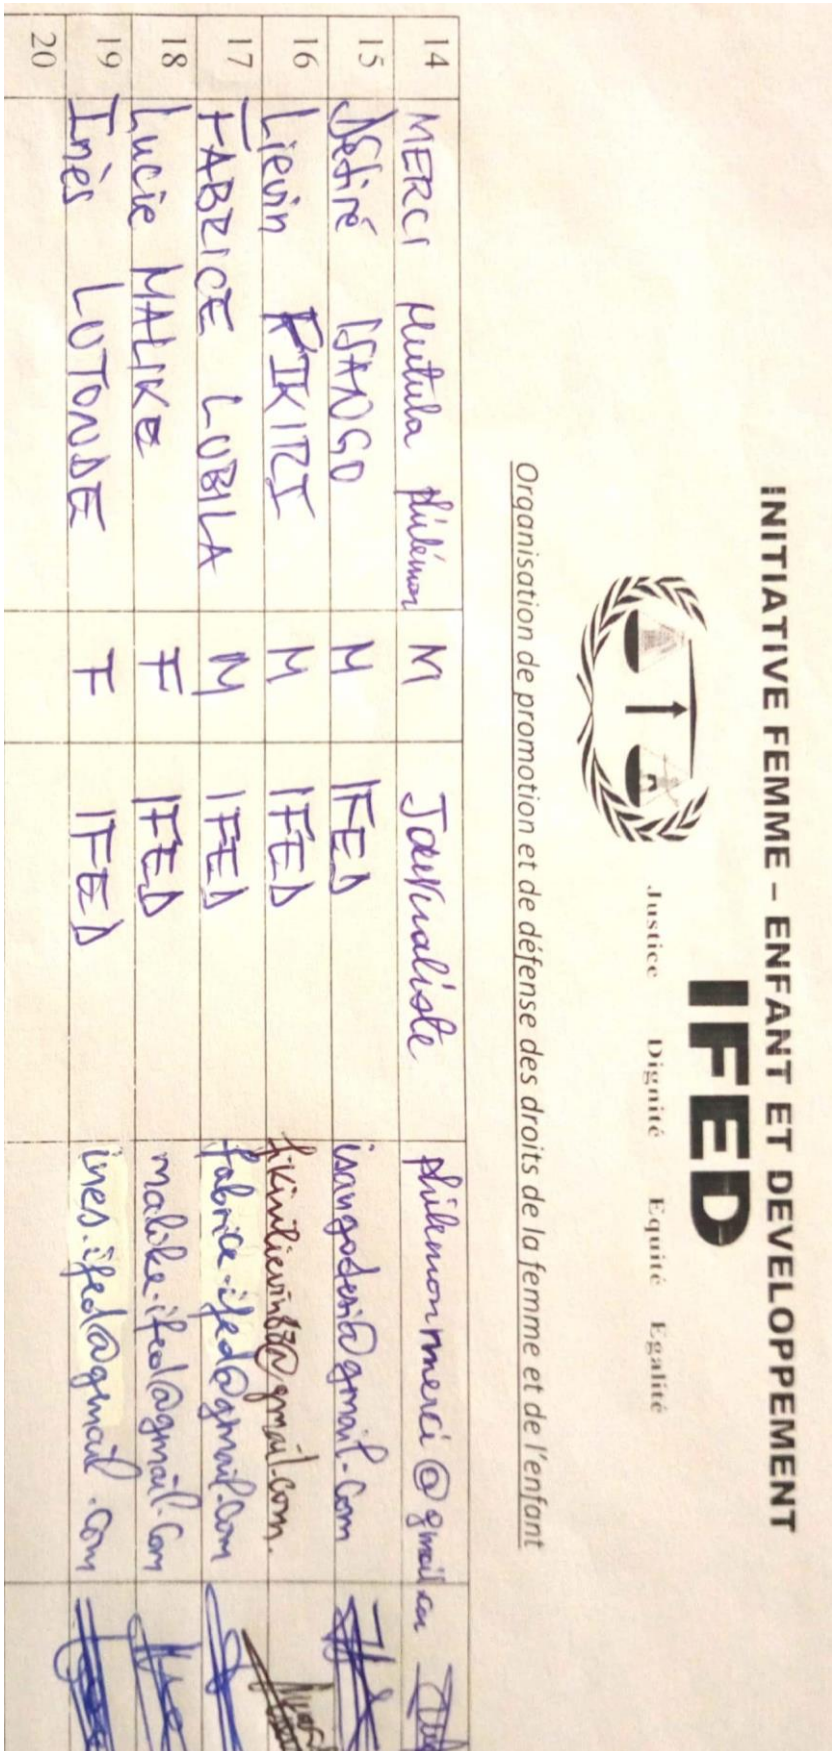 INITIATIVE FEMME – ENFANT ET DEVELOPPEMENT
IFED
Justice Dignité Equité Egalité
Organisation de promotion et de défense des droits de la femme et de l'enfant
14 MERCI Mutula philémon M Journaliste philemonmerci@gmail.com
15 Désiré ISANGO M IFED isangodesi@gmail.com
16 Lievin FIKIRI M IFED fikirilievin87@gmail.com.
17 FABRICE LUBILA M IFED fabrice.ifed@gmail.com
18 Lucie MALIKE F IFED malike.ifed@gmail.com
19 Inès LUTONDE F IFED ines.ifed@gmail.com
20